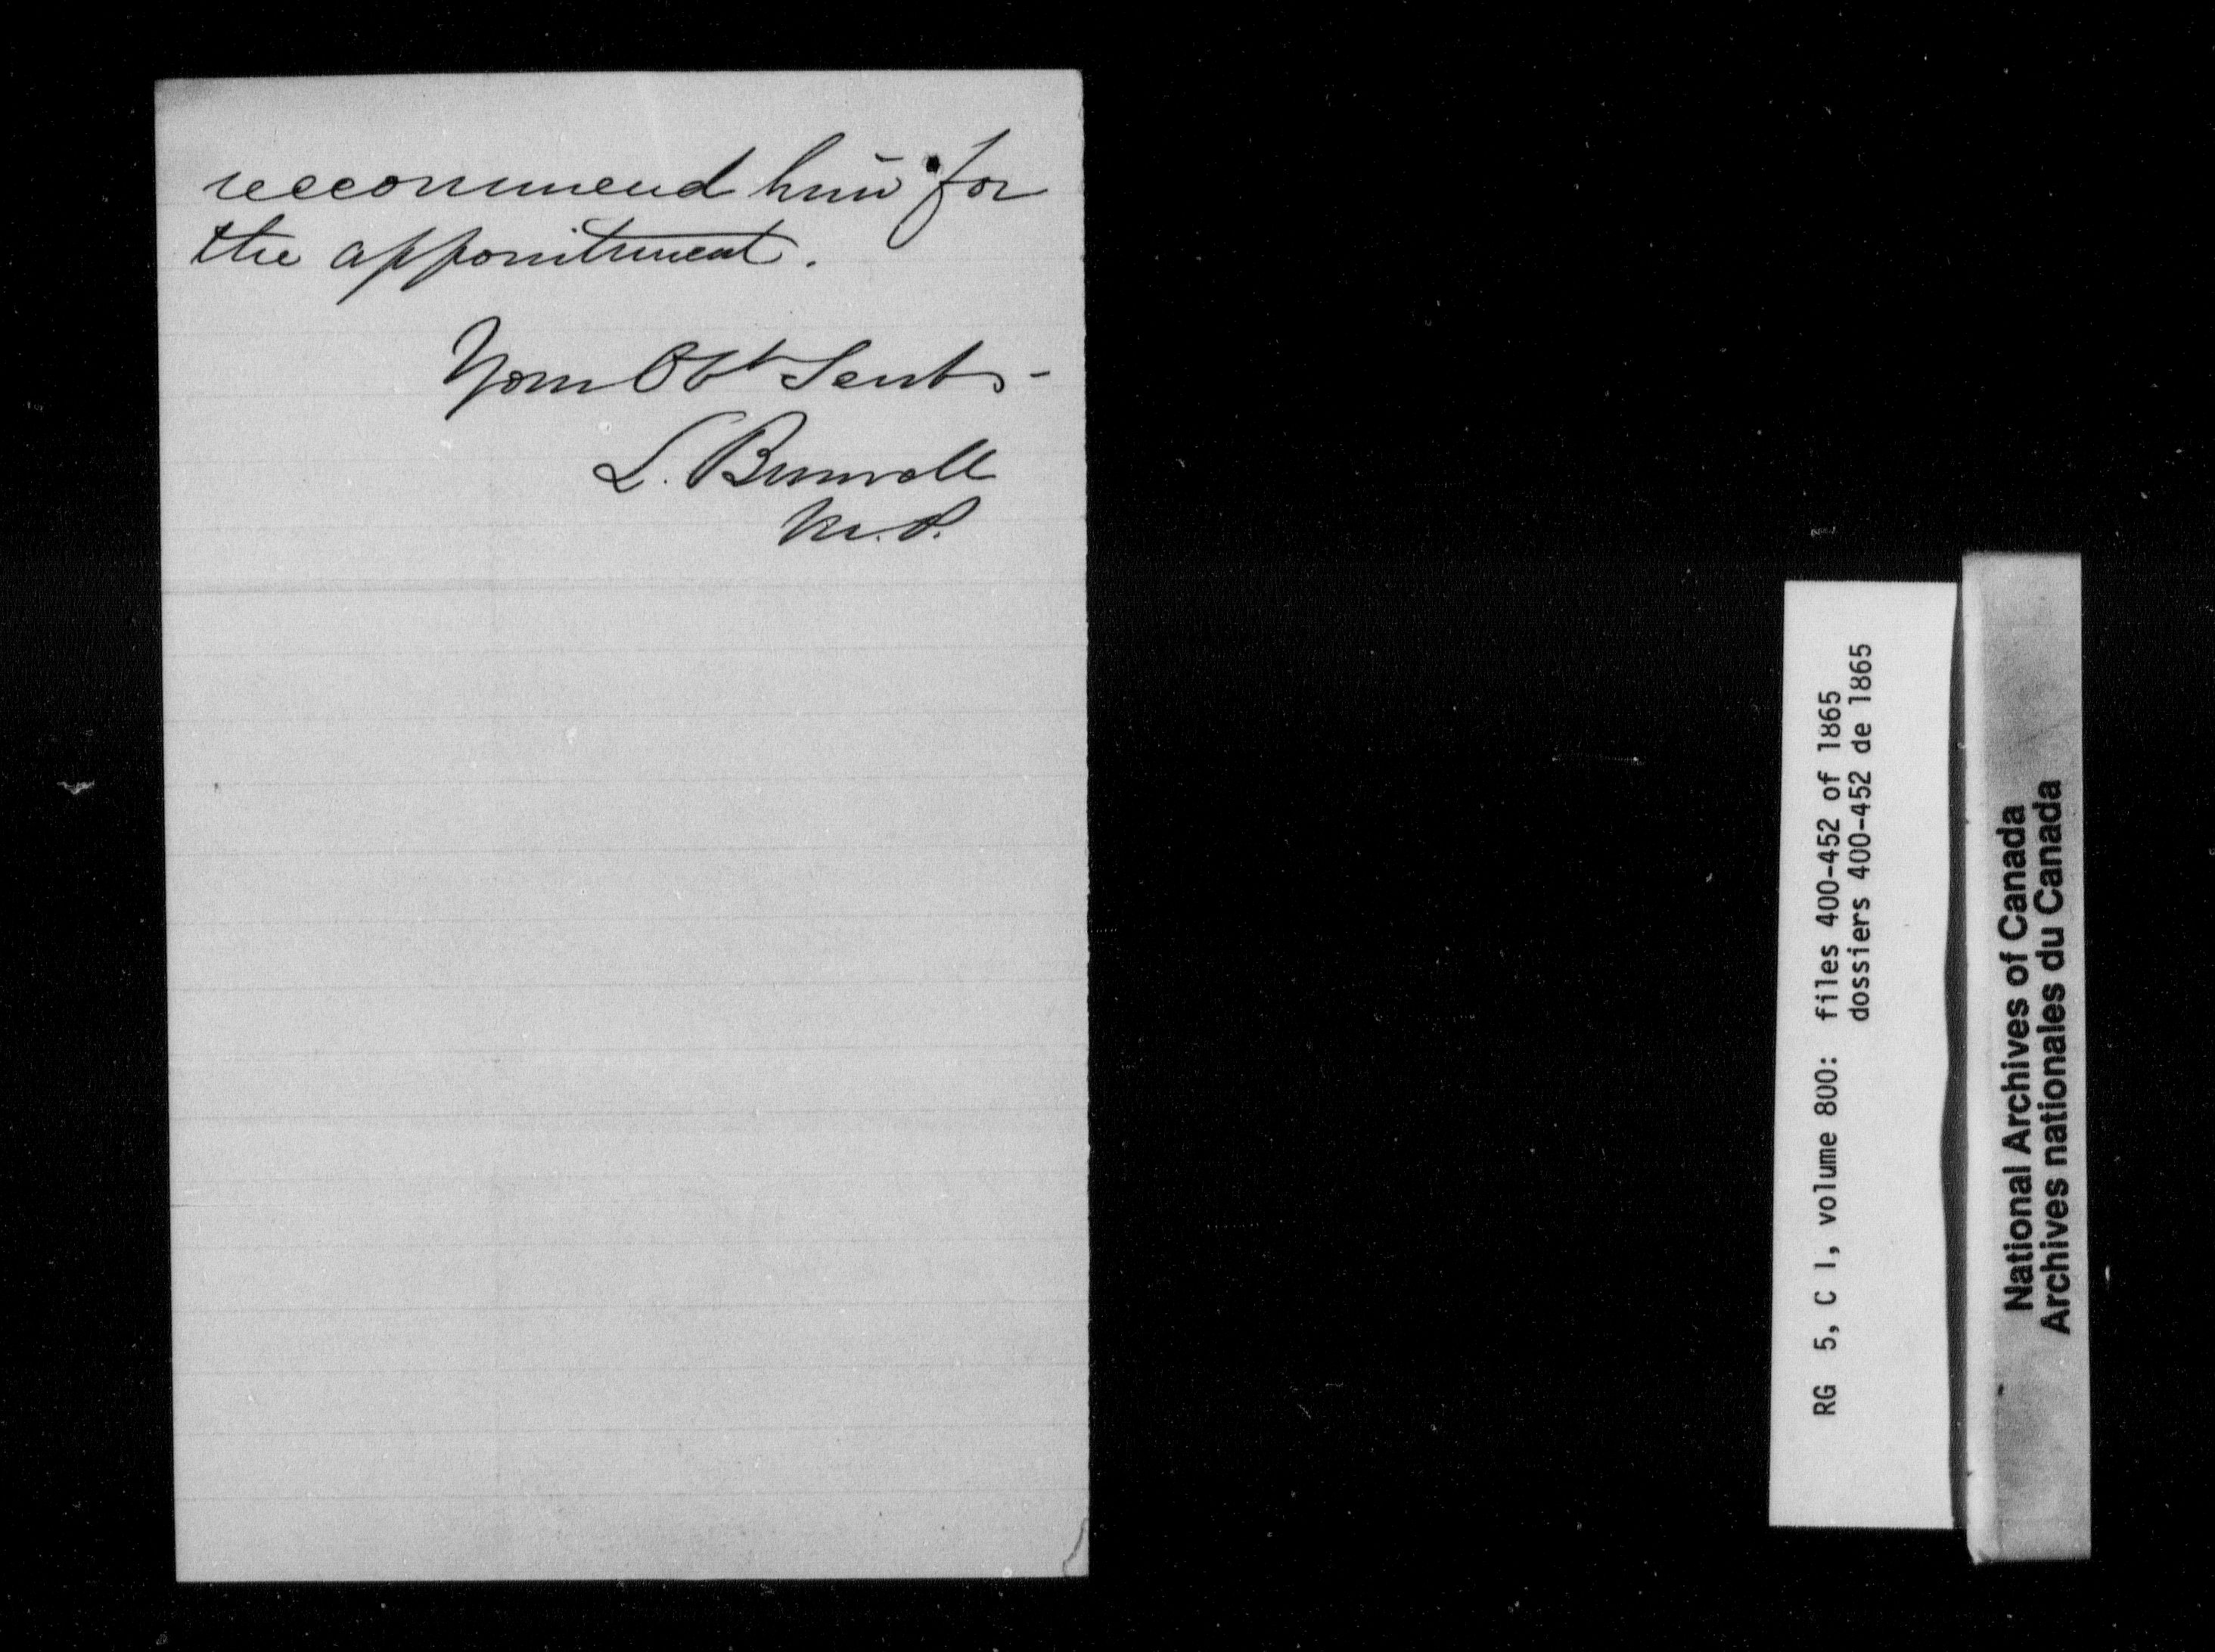 reccommend him for
the appointment.
Your Obt Servt -
L. Burwell
M.P.
RG 5, C 1, volume 800: files 400-452 of 1865
dossiers 400-452 de 1865
National Archives of Canada
Archives nationales du Canada